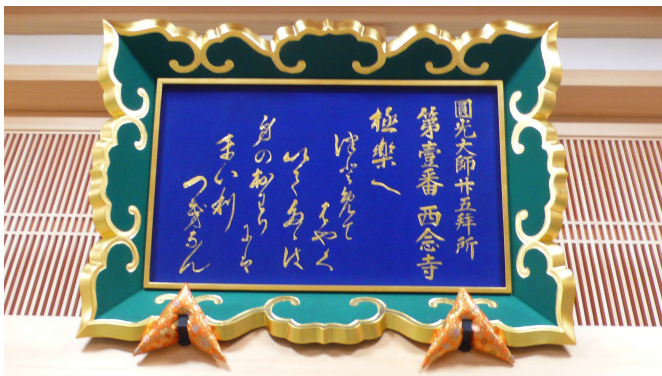 圓光大師廿五拜所
第壹番 西念寺
極樂へ
津とめて
はやく
いてたゝは
身のおわり
には
まい利
つきなん